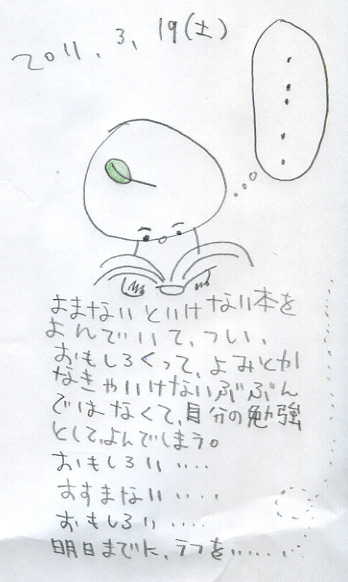 2011.3.19(土)
・・・・・
よまないといけない本を
よんでいて、つい、
おもしろくって、よみとか
なきゃいけないぶぶん
ではなくて、自分の勉強
としてよんでしまう。
おもしろい‥‥
すすまない‥‥
おもしろい‥‥
明日までに、ラフを‥‥‥